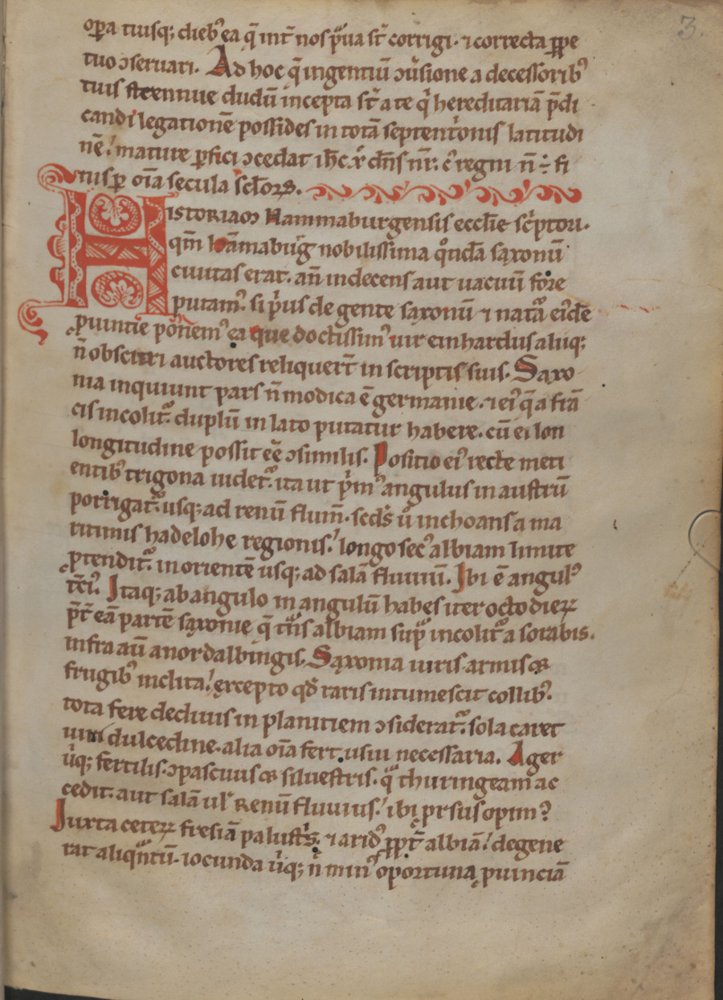 3.
opera tuisq; dieb' ea q̄ int̄ nos p̄ua st̄ corrigi · ⁊ correcta ꝑpe
tuo ꝯseruari. Ad hoc q̄ ingentiū ꝯu̓sione a decessorib'
tuis strennue dudū incepta st̄ a te q̓ hereditariā p̄di
candi legationē possides in totā septent͛onis latitudi
nē! mature ꝑfici ꝯcedat ih̄c xp̄ dn̄s nr̄: c̓ regni n̄ ÷ fi
nis ꝑ oīa secula sc̄loꝝ.
HISTORIAM Hammaburgensis eccl̄ie sc̓ptori·
q̄m hāmabur̄g nobilissima q̊ndā saxonū
ciuitas erat · an̄ indecens aut uacuū fore
putam' · si p̓us de gente saxonū ⁊ natā ei'dē
ꝓuintie ponem' ea que doctissim' uir einhardus aliiq;
n̄ obscuri auctores reliquert̄ in scriptis suis. Saxo
nia inquiunt pars n̄ modica ē germanie · ⁊ ei' q̄ a frā
cis incolit̄ · duplū in lato putatur habere · cū ei lon
longitudine possit eē ꝯsimilis. Positio ei' recte meti
entib' trigona uidet̄ · ita ut p̓m' angulus in austrū
porrigat̄ · usq; ad renū flum̄ · sc̄ds ū inchoans a ma
ritimis hadelohe regionis! longo sec' albiam limite
ꝓtendit̄ · in orientē usq; ad salā fluuiū. Ibi ē angul'
tc̄i'. Itaq; ab angulo in angulū habes iter octo dierꝝ
p̄t̄ eā partē saxonie q̄ tn̄s albiam sup̄ incolit̄ a sorabis.
infra aū a nordalbingis. Saxonia uiris armis ⁊
frugib' inclita! excepto qđ raris intumescit collib'.
tota fere decliuis in planitiem ꝯsiderat̄ · sola caret
uini dulcedine · alia oīa fert · usui necessaria. Ager
u̓q; fertilis · ꝯpascuus ⁊ siluestris · q̄ thuringeam ac
cedit · aut salā ul̓ Renū fluuius! ibi prsus opim'.
Iuxta ceterꝝ fresiā palust͛s · ⁊ arid' ꝓpt̄ albiā! degene
rat aliq̄ntū · iocunda u̓q; n̄ min' oportuna ꝓuinciā